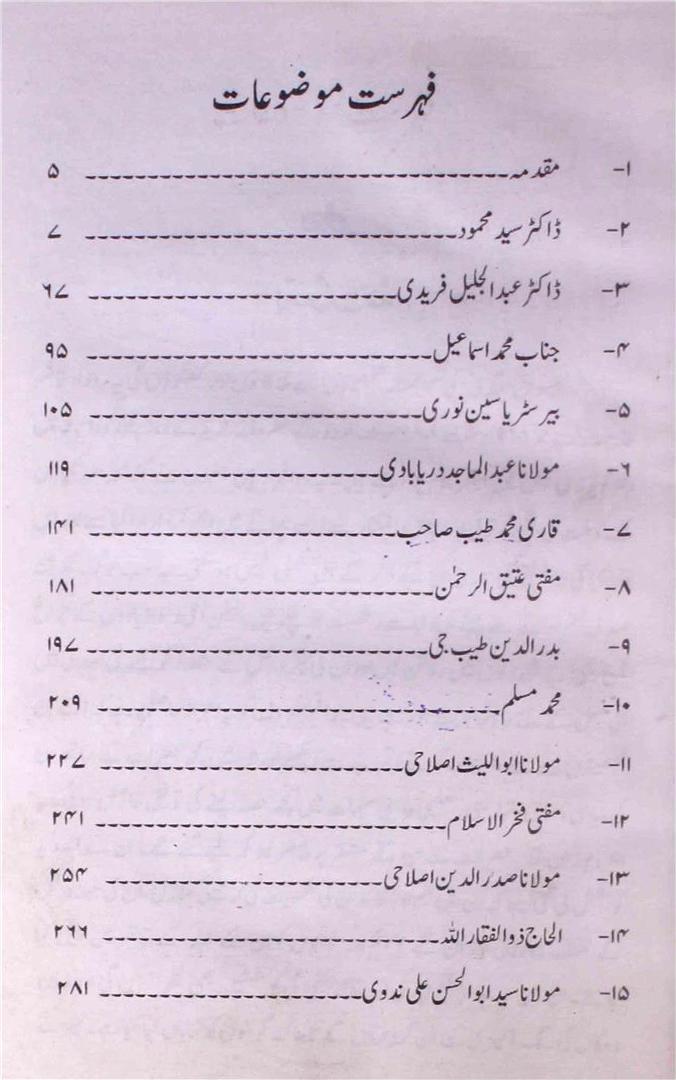 فہرست موضوعات
۱- مقدمہ ۵
۲- ڈاکٹر سید محمود ۷
۳- ڈاکٹر عبدالجلیل فریدی ۶۷
۴- جناب محمد اسماعیل ۹۵
۵- بیرسٹر یاسین نوری ۱۰۵
۶- مولانا عبدالماجد دریابادی ۱۱۹
۷- قاری محمد طیب صاحب ۱۴۱
۸- مفتی عتیق الرحمٰن ۱۸۱
۹- بدرالدین طیب جی ۱۹۷
۱۰- محمد مسلم ۲۰۹
۱۱- مولانا ابواللیث اصلاحی ۲۲۷
۱۲- مفتی فخرالاسلام ۲۴۱
۱۳- مولانا صدرالدین اصلاحی ۲۵۴
۱۴- الحاج ذوالفقار اللہ ۲۶۶
۱۵- مولانا سید ابوالحسن علی ندوی ۲۸۱